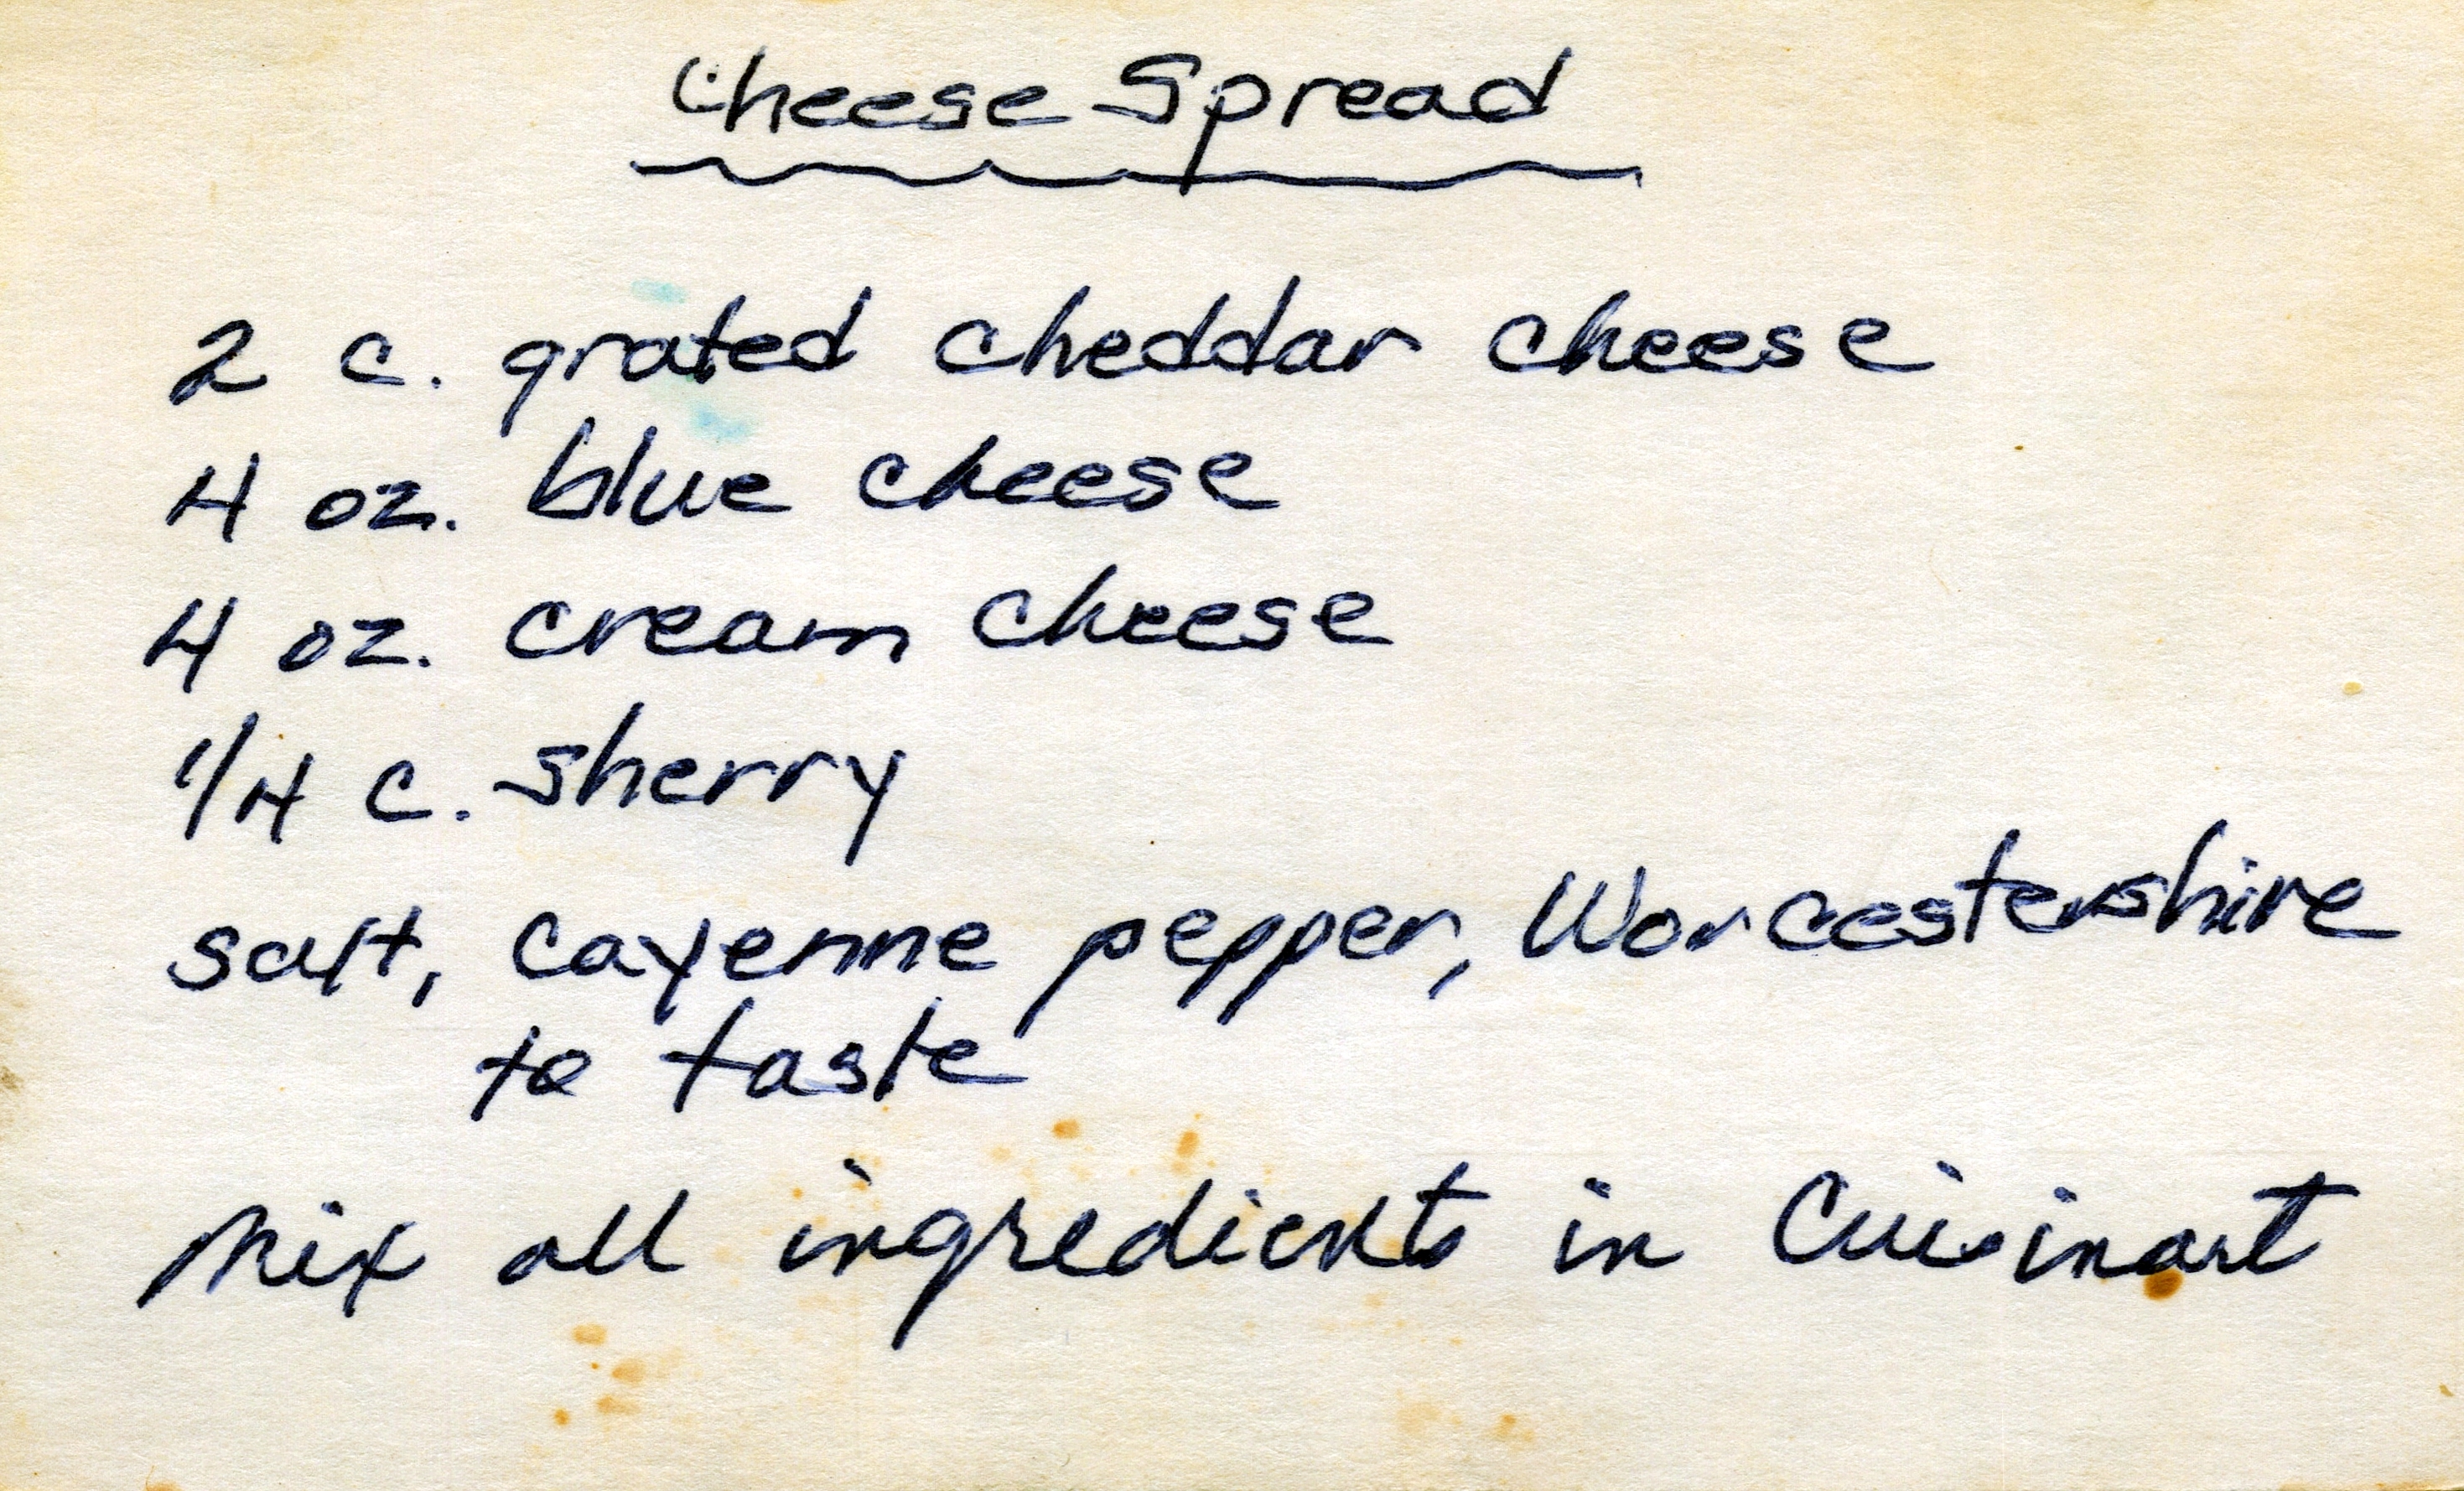 Cheese Spread
2 c. grated cheddar cheese
4 oz. blue cheese
4 oz. cream cheese
1/4 c. sherry
salt, cayenne pepper, Worcestershire
to taste
Mix all ingredients in Cuisinart